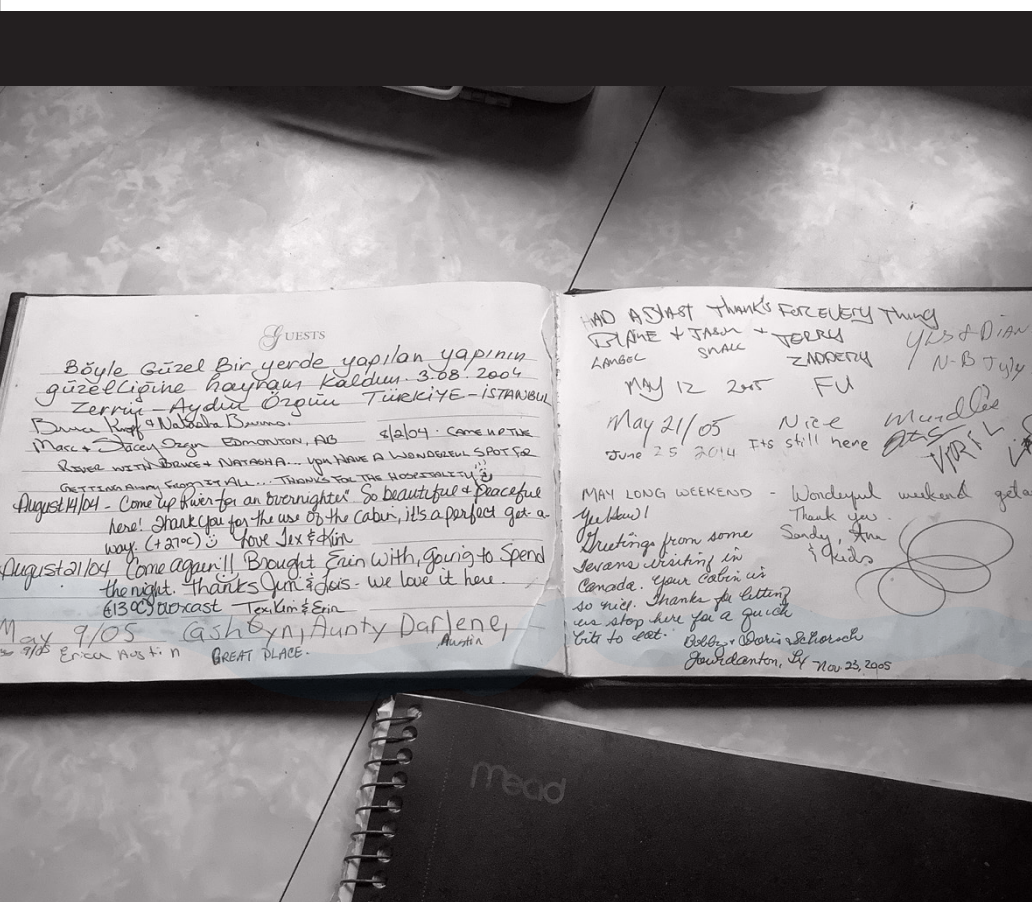 GUESTS
Böyle Güzel Bir yerde yapılan yapının
güzelliğine hayran kaldım. 3.08.2004
Zerrin - Aydın Özgün TÜRKİYE - İSTANBUL
Bruce & Natasha
Marc & Stacey Ozgin EDMONTON, AB 8/2/04 - CAME UP THE
RIVER WITH BRUCE & NATASHA... YOU HAVE A WONDERFUL SPOT FOR
GETTING AWAY FROM IT ALL... THANKS FOR THE HOSPITALITY
August 14/04 - Come up River for an overnighter. So beautiful & peaceful
here! Thank you for the use of the cabin, it's a perfect get-a-
way. (+27°C) Love Tex & Kim
August 21/04 Come again!! Brought Erin with, going to Spend
the night. Thanks Jim & Lois - we love it here.
(13°C) overcast Tex, Kim & Erin
May 9/05 Cashtyn, Aunty Darlene,
Austin
9/05 Erica Austin GREAT PLACE.
HAD A BLAST THANKS FOR EVERY THING
BLAINE + JASON + TERRY
SMALL ZADDERY
MAY 12 2005 FU
Yves & Dian
N-B July
May 21/05 Nice
June 25 2014 Its still here
MAY LONG WEEKEND - Wonderful weekend
Thank you.
Sandy,
& kids
Greetings from some
Texans visiting in
Canada. Your cabin is
so nice. Thanks for letting
us stop here for a quick
bite to eat. Bobby & Doris Schorsch
Jourdanton, Nov 23, 2005
mead